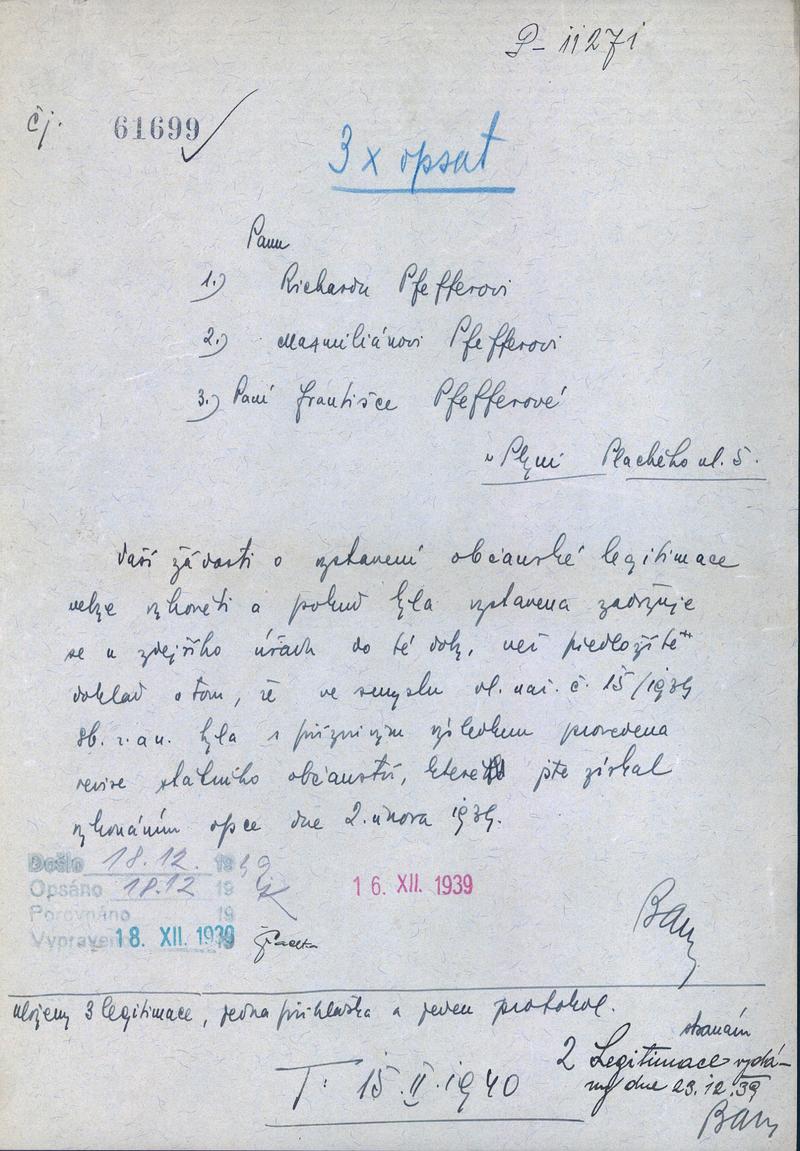 P - 11271
čj. 61699
3 x opsat
Panu
1.) Richardu Pfefferovi
2.) Maxmiliánovi Pfefferovi
3.) Paní Františce Pfefferové
v Plzni Plachého ul. 5.
Vaší žádosti o vystavení občanské legitimace
nelze vyhověti a pokud byla vystavena zadržuje
se u zdejšího úřadu do té doby, než předložíte
doklad o tom, že ve smyslu vl. nař. č. 15/1939
Sb. z. a n. byla s příznivým výsledkem provedena
revise státního občanství, které jste získal
vykonáním opce dne 2. února 1939.
Došlo 18.12. 19
Opsáno 18.12 19
Porovnáno 19
Vypraveno 18. XII. 1939
16. XII. 1939
uloženy 3 legitimace, jedna přihláška a jeden protokol.
stranám
2 Legitimace vydá-
ny dne 23.12.39
T: 15.II.1940